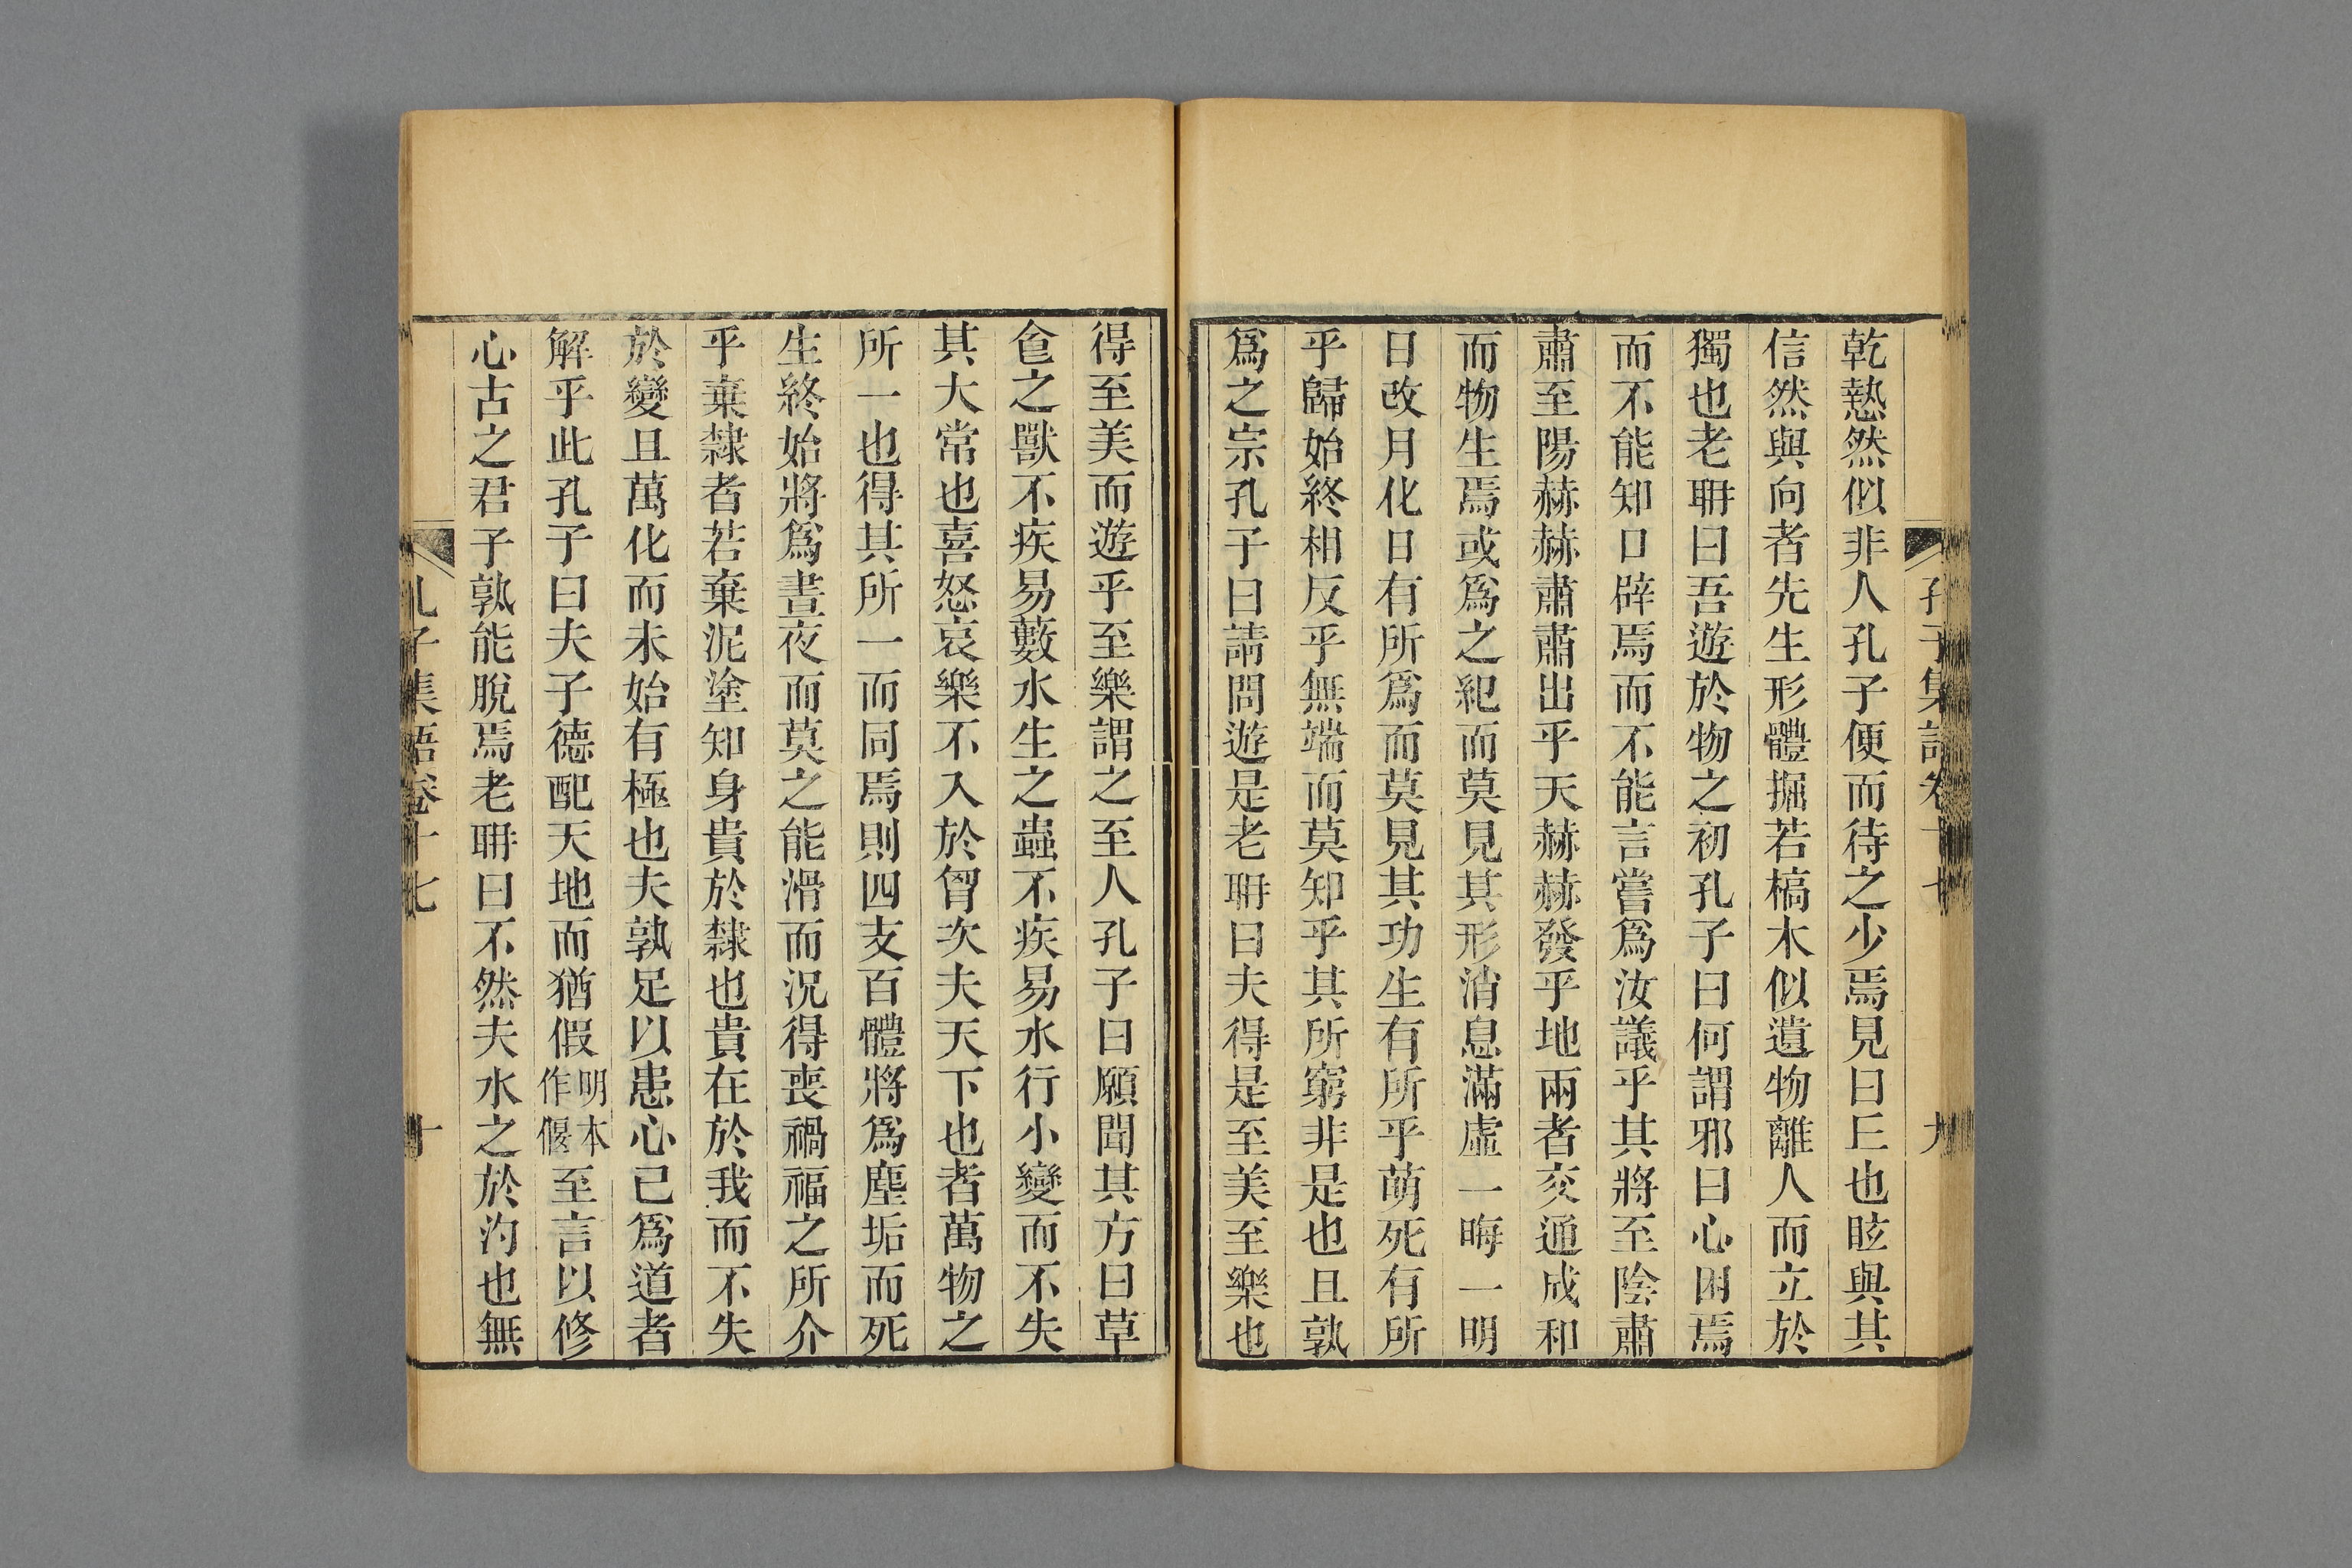 孔子集語卷十七 九
乾慹然似非人孔子便而待之少焉見曰𠀉也眩與其
信然與向者先生形體掘若槁木似遺物離人而立於
獨也老耼曰吾遊於物之初孔子曰何謂邪曰心困焉
而不能知口辟焉而不能言嘗爲汝議乎其將至陰肅
肅至陽赫赫肅肅出乎天赫赫發乎地兩者交通成和
而物生焉或爲之紀而莫見其形消息滿虛一晦一明
日改月化日有所爲而莫見其功生有所乎萌死有所
乎歸始終相反乎無端而莫知乎其所窮非是也且孰
爲之宗孔子曰請問遊是老耼曰夫得是至美至樂也
得至美而遊乎至樂謂之至人孔子曰願聞其方曰草
𠊊之獸不疾易藪水生之蟲不疾易水行小變而不失
其大常也喜怒哀樂不入於胷次夫天下也者萬物之
所一也得其所一而同焉則四支百體將爲塵垢而死
生終始將爲晝夜而莫之能滑而況得喪禍福之所介
乎棄隸者若棄泥塗知身貴於隸也貴在於我而不失
於變且萬化而未始有極也夫孰足以患心已爲道者
解乎此孔子曰夫子德配天地而猶假明本作偃至言以修
心古之君子孰能脫焉老耼曰不然夫水之於汋也無
孔子集語卷十七 十